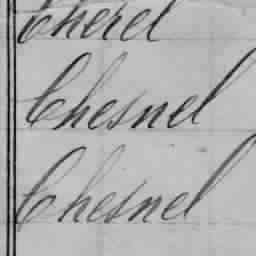 Cherel
Chesnel
Chesnel